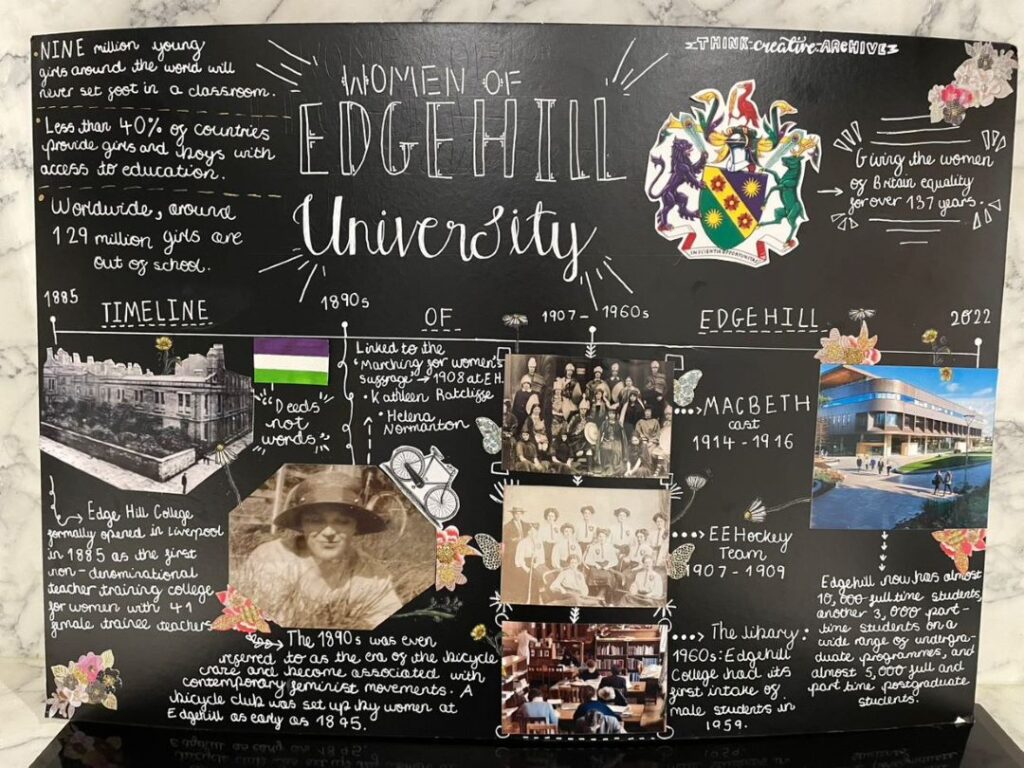 NINE million young
girls around the world will
never set foot in a classroom.
Less than 40% of countries
provide girls and boys with
access to education.
Worldwide, around
129 million girls are
out of school.
WOMEN OF
EDGEHILL
University
THINK creative ARCHIVE
IN SCIENTIA OPPORTUNITAS
Giving the women
of Britain equality
for over 137 years.
1885
TIMELINE
1890s
OF
1907-1960s
EDGEHILL
2022
Edge Hill College
formally opened in Liverpool
in 1885 as the first
non-denominational
teacher training college
for women with 41
female trainee teachers
"Deeds
not
words"
Linked to the
Marching for women's
suffrage → 1908 at E.H.
• Kathleen Ratcliffe
• Helena
Normanton
The 1890s was even
referred to as the era of the bicycle
craze and become associated with
contemporary feminist movements. A
bicycle club was set up by women at
Edgehill as early as 1895.
MACBETH
cast
1914-1916
EEHockey
Team
1907-1909
The library:
1960s: Edgehill
College had its
first intake of
male students in
1959.
Edgehill now has almost
10,000 full time students,
another 3,000 part-
time students on a
wide range of undergra-
duate programmes, and
almost 5,000 full and
part time postgraduate
students.